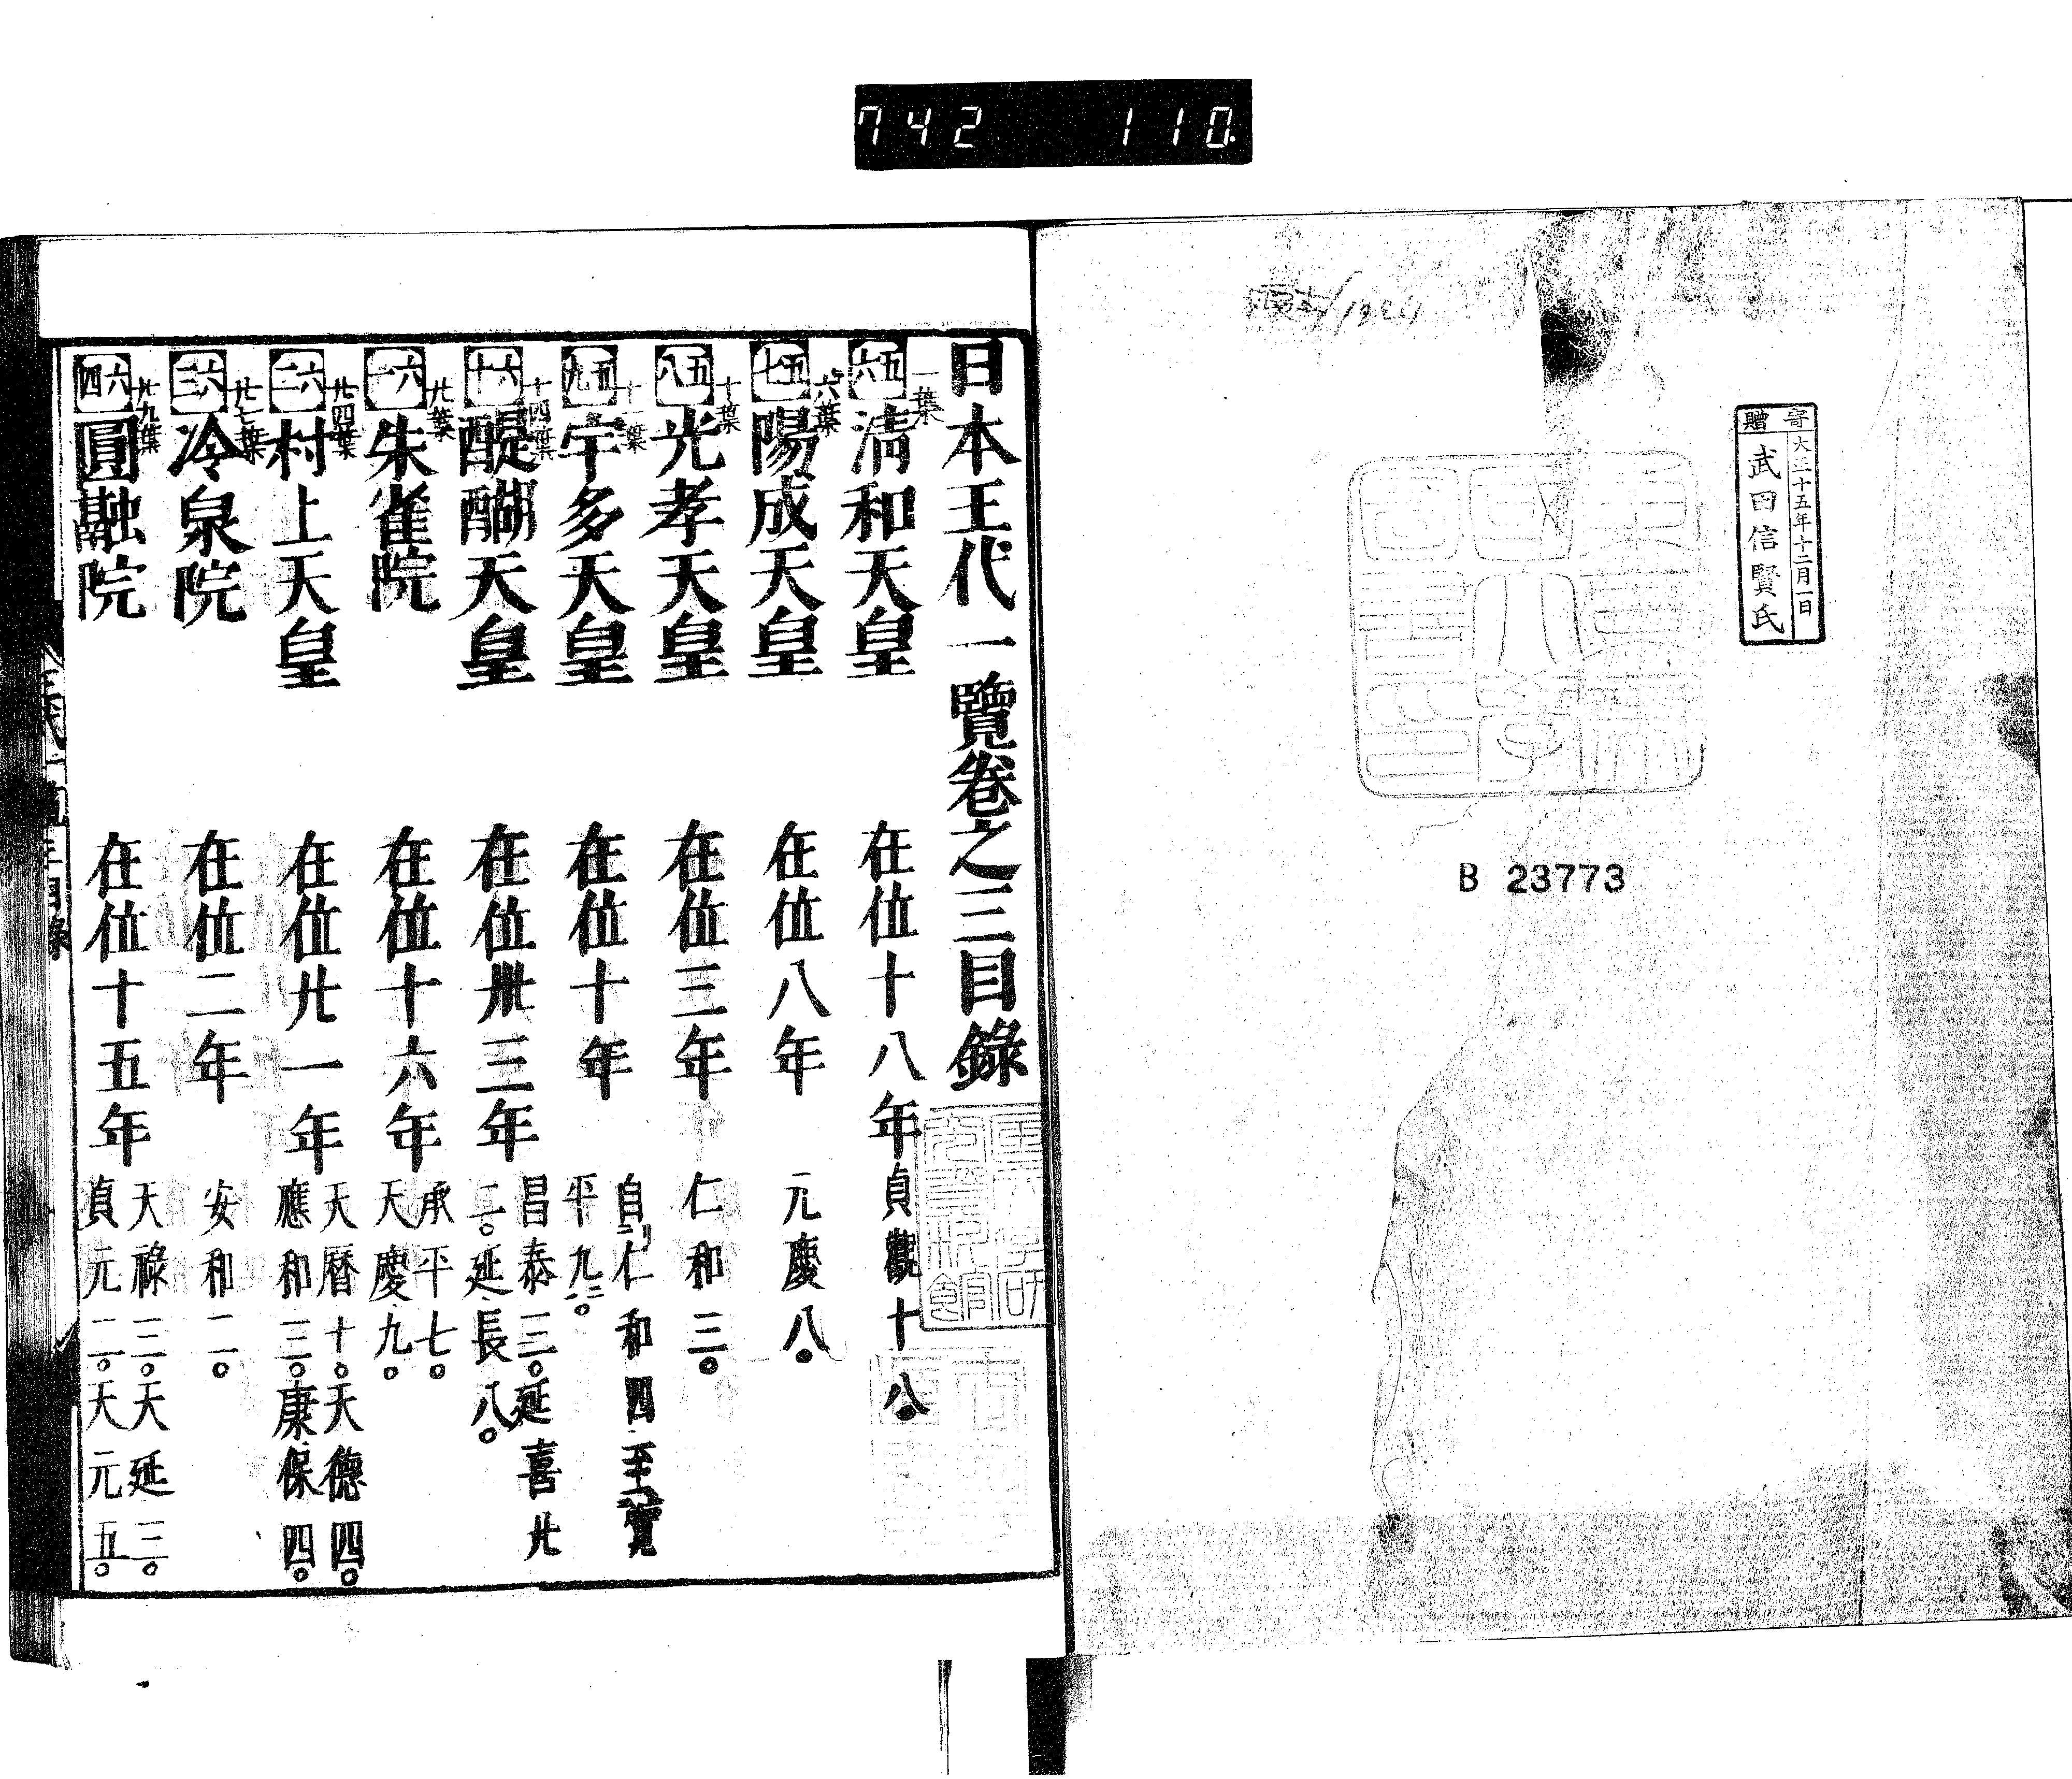 742 110
寄贈
大正十五年十二月一日
武田信賢氏
B 23773
日本王代一覽卷之三目錄
五六 一葉 淸和天皇 在位十八年 貞觀十八。
五七 六葉 陽成天皇 在位八年 元慶八。
五八 十葉 光孝天皇 在位三年 仁和三。
五九 十一葉 宇多天皇 在位十年 自仁和四至寛
平九。
六十 十四葉 醍醐天皇 在位卅三年 昌泰三。延喜廿
二。延長八。
六一 廿葉 朱雀院 在位十六年 承平七。
天慶九。
六二 廿四葉 村上天皇 在位廿一年 天曆十。天德四。
應和三。康保四。
六三 廿七葉 冷泉院 在位二年 安和二。
六四 廿九葉 圓融院 在位十五年 天祿三。天延三。
貞元二。天元五。